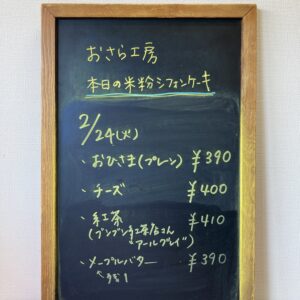 おさら工房
本日の米粉シフォンケーキ
2/24(火)
・おひさま(プレーン) ¥390
・チーズ ¥400
・紅茶 ¥410
(ブンブン紅茶店さん
アールグレイ)
・メープルバター ¥390